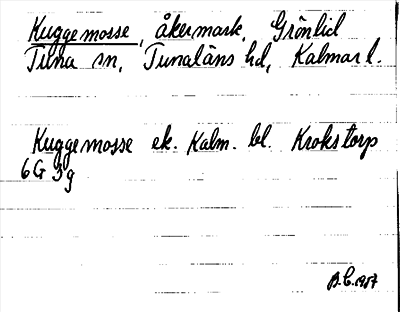 Kuggemosse, åkermark, Grönlid
Tuna sn, Tunaläns hd, Kalmar l.
Kuggemosse ek. Kalm. bl. Krokstorp
6G 3g
B.C. 1957